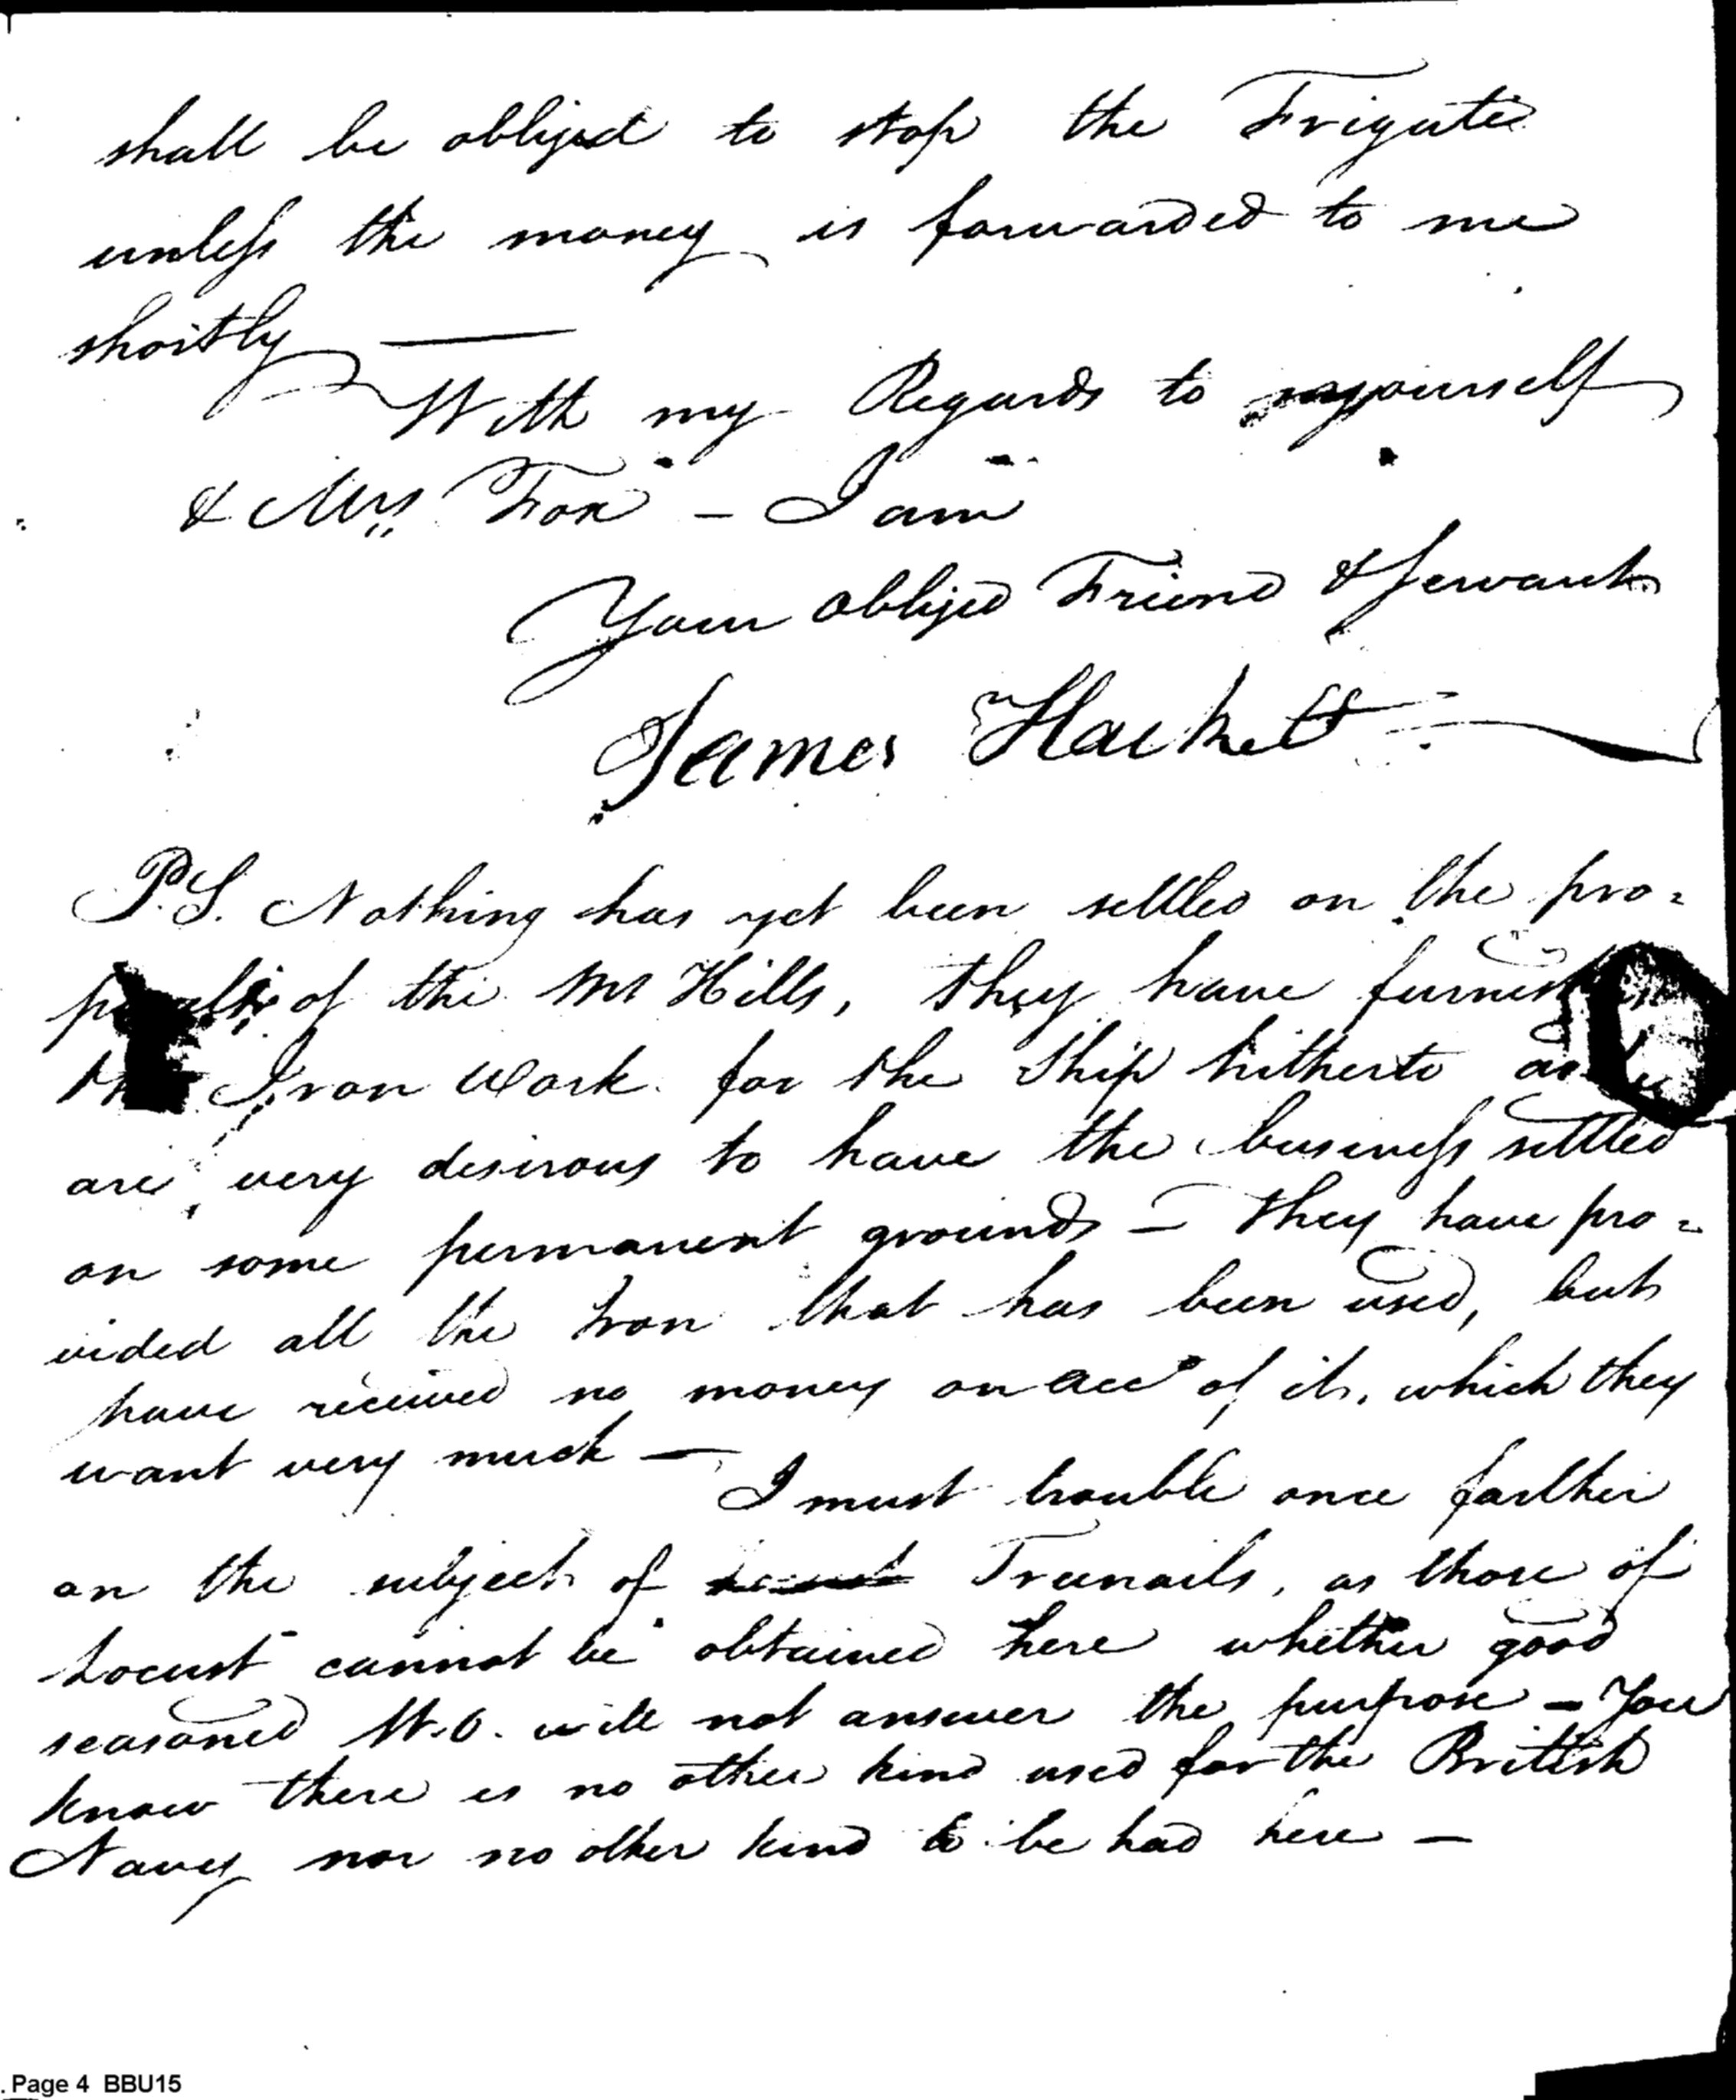 shall be obliged to stop the Frigate
unless the money is forwarded to me
shortly —
With my Regards to yourself
& Mrs Fox – I am
Your obliged Friend & Servant
James Hackett
P.S. Nothing has yet been settled on the pro=
of the Mr Hills, they have furnish
the Iron work for the Ship hitherto
are very desirous to have the business settled
on some permanent grounds – they have pro=
vided all the Iron that has been used, but
have received no money on acct of it, which they
want very much —
I must trouble once farther
on the subject of Treenails, as those of
Locust cannot be obtained here whether good
seasoned W.O. will not answer the purpose – You
know there is no other kind used for the British
Navy nor no other kind to be had here –
Page 4 BBU15